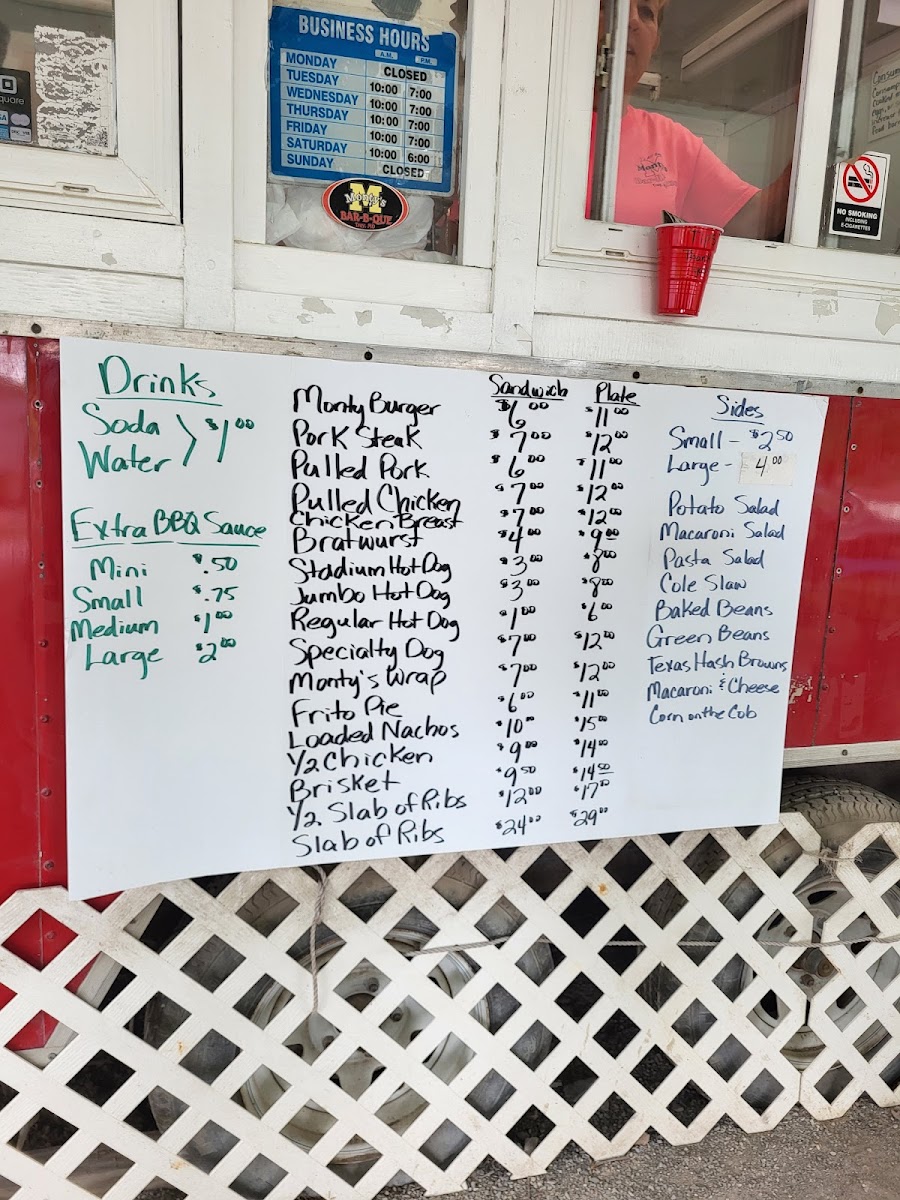 BUSINESS HOURS
A.M. P.M.
MONDAY CLOSED
TUESDAY 10:00 7:00
WEDNESDAY 10:00 7:00
THURSDAY 10:00 7:00
FRIDAY 10:00 7:00
SATURDAY 10:00 6:00
SUNDAY CLOSED
M
Monty's
BAR-B-QUE
Square
NO SMOKING
INCLUDING
E-CIGARETTES
Drinks
Soda
Water > $1.00
Extra BBQ Sauce
Mini $.50
Small $.75
Medium $1.00
Large $2.00
Sandwich Plate
Monty Burger $6.00 $11.00
Pork Steak $7.00 $12.00
Pulled Pork $6.00 $11.00
Pulled Chicken $7.00 $12.00
Chicken Breast $7.00 $12.00
Bratwurst $4.00 $9.00
Stadium Hot Dog $3.00 $8.00
Jumbo Hot Dog $3.00 $8.00
Regular Hot Dog $1.00 $6.00
Specialty Dog $7.00 $12.00
Monty's Wrap $7.00 $12.00
Frito Pie $6.00 $11.00
Loaded Nachos $10.00 $15.00
1/2 Chicken $9.00 $14.00
Brisket $9.50 $14.50
1/2 Slab of Ribs $12.00 $17.00
Slab of Ribs $24.00 $29.00
Sides
Small - $2.50
Large - $4.00
Potato Salad
Macaroni Salad
Pasta Salad
Cole Slaw
Baked Beans
Green Beans
Texas Hash Browns
Macaroni & Cheese
Corn on the Cob